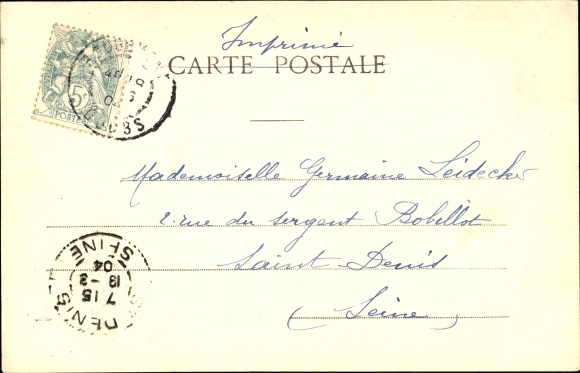 Imprimé
CARTE POSTALE
5c
POSTES
DOUBS
Mademoiselle Germaine Leidecker
2 rue du sergent Bobillot
Saint-Denis
(Seine)
ST DENIS
7 15
13 - 3
04
SEINE